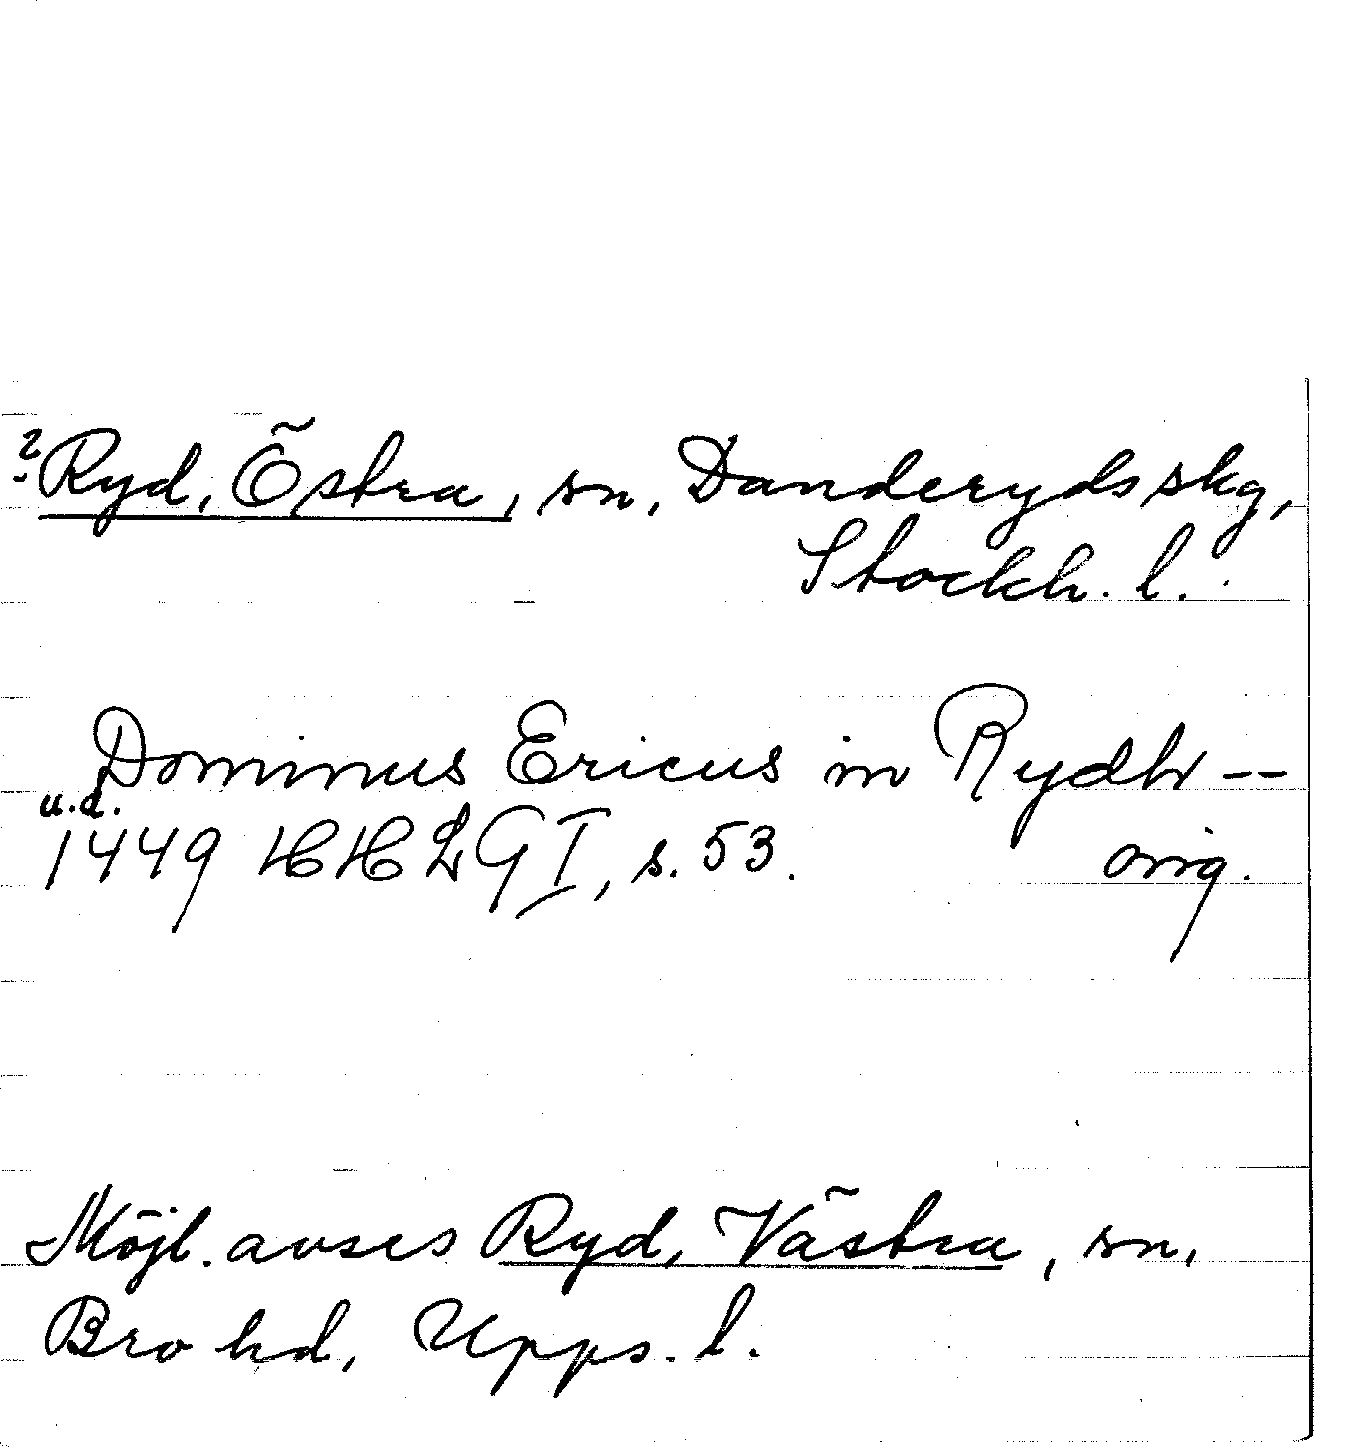 ? Ryd, Östra, sn, Danderyds skg,
Stockh. l.
Dominus Ericus in Rydh --
u.d.
1449 HHLG I, s. 53. orig.
Möjl. avses Ryd, Västra, sn,
Bro hd, Upps. l.